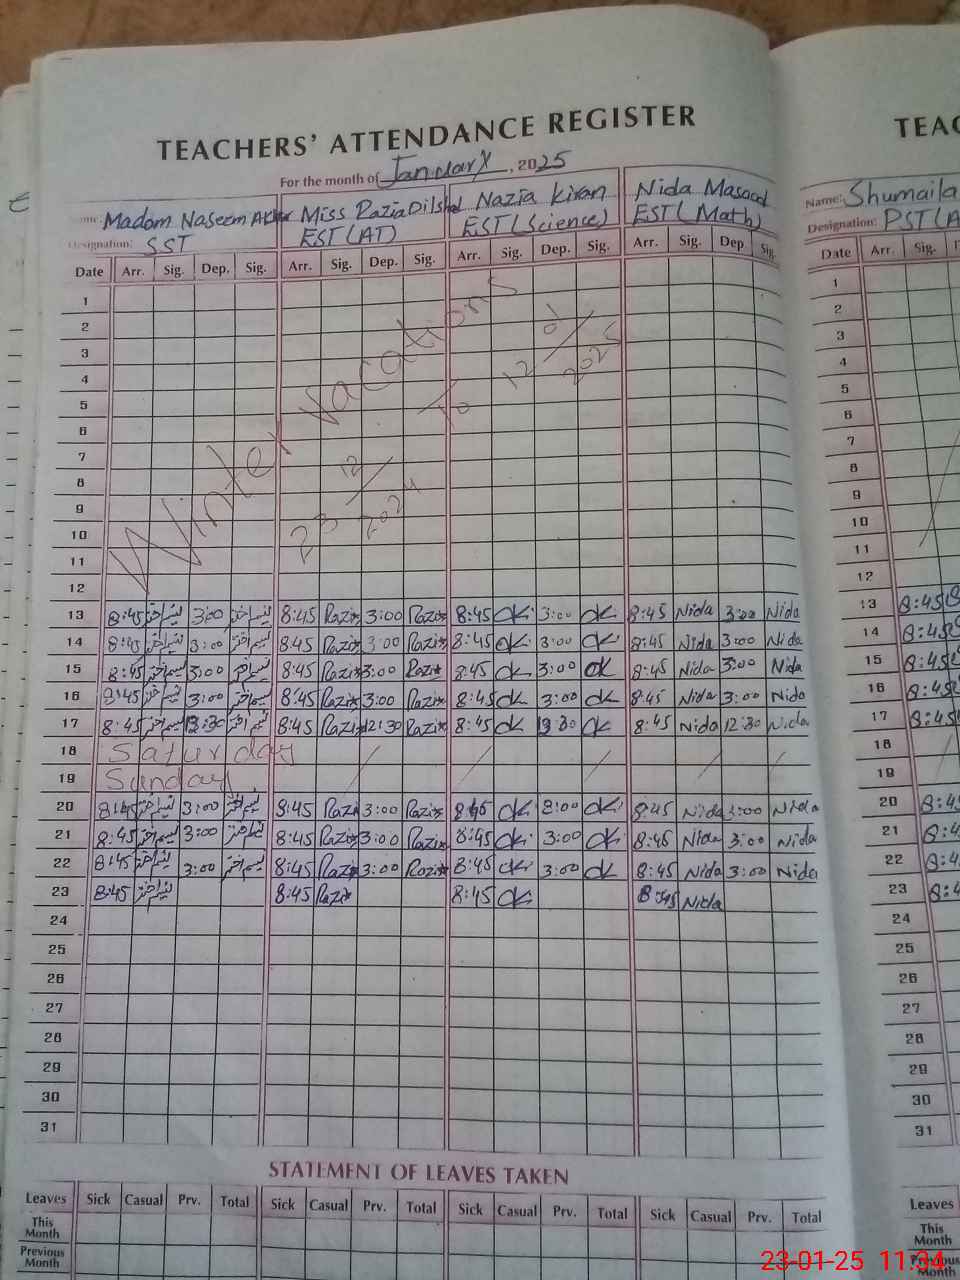 TEACHERS' ATTENDANCE REGISTER
For the month of January, 2025
Madam Naseem Akhtar Miss Razia Dilshad Nazia Kiran Nida Masood
Designation: SST EST(AT) EST(Science) EST(Math)
Date Arr. Sig. Dep. Sig. Arr. Sig. Dep. Sig. Arr. Sig. Dep. Sig. Arr. Sig. Dep. Sig.
1
2
3
4
5
6
7
8
9
10
11
12
Winter Vacations
23 12/2024 To 12 01/2025
13 8:45 نسیم اختر 3:00 نسیم اختر 8:45 Razia 3:00 Razia 8:45 3:00 8:45 Nida 3:00 Nida
14 8:45 نسیم اختر 3:00 نسیم اختر 8:45 Razia 3:00 Razia 8:45 3:00 8:45 Nida 3:00 Nida
15 8:45 نسیم اختر 3:00 نسیم اختر 8:45 Razia 3:00 Razia 8:45 3:00 8:45 Nida 3:00 Nida
16 8:45 نسیم اختر 3:00 نسیم اختر 8:45 Razia 3:00 Razia 8:45 3:00 8:45 Nida 3:00 Nida
17 8:45 نسیم اختر 12:30 نسیم اختر 8:45 Razia 12:30 Razia 8:45 12:30 8:45 Nida 12:30 Nida
18 Saturday
19 Sunday
20 8:45 نسیم اختر 3:00 نسیم اختر 8:45 Razia 3:00 Razia 8:45 3:00 8:45 Nida 3:00 Nida
21 8:45 نسیم اختر 3:00 نسیم اختر 8:45 Razia 3:00 Razia 8:45 3:00 8:45 Nida 3:00 Nida
22 8:45 نسیم اختر 3:00 نسیم اختر 8:45 Razia 3:00 Razia 8:45 3:00 8:45 Nida 3:00 Nida
23 8:45 نسیم اختر 8:45 Razia 8:45 8:45 Nida
24
25
26
27
28
29
30
31
STATEMENT OF LEAVES TAKEN
Leaves Sick Casual Prv. Total Sick Casual Prv. Total Sick Casual Prv. Total Sick Casual Prv. Total
This Month
Previous Month
TEAC
Name: Shumaila
Designation: PST(A
Date Arr. Sig.
1
2
3
4
5
6
7
8
9
10
11
12
13 8:45
14 8:45
15 8:45
16 8:45
17 8:45
18
19
20 8:4
21 8:4
22 8:4
23 8:4
24
25
26
27
28
29
30
31
Leaves
This Month
Previous Month
23-01-25 11:34